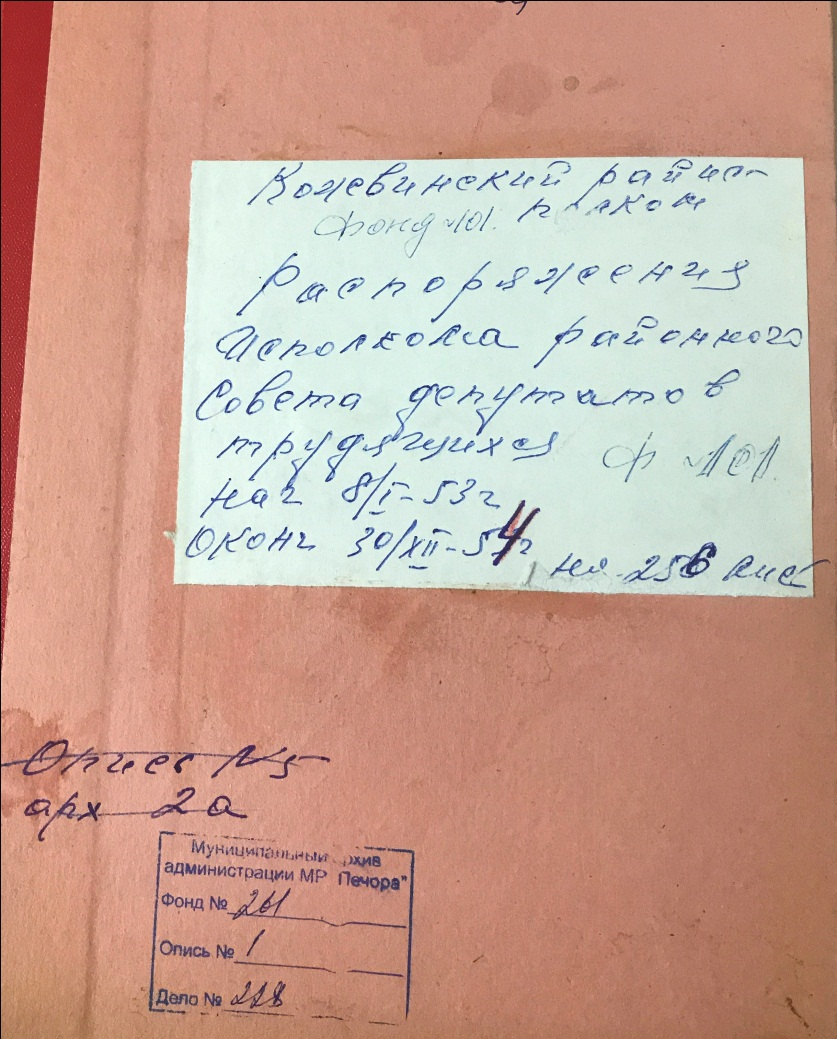 Кожвинский райис-
полком
Фонд №101.
Распоряжения
Исполкома районного
Совета депутатов
трудящихся
Ф №101.
нач 8/I-53г
Оконч 30/XII-54г
на 256 лис
Опись №5
арх 2а
Муниципальный архива
администрации МР Печора"
Фонд № 261
Опись № 1
Дело № 228